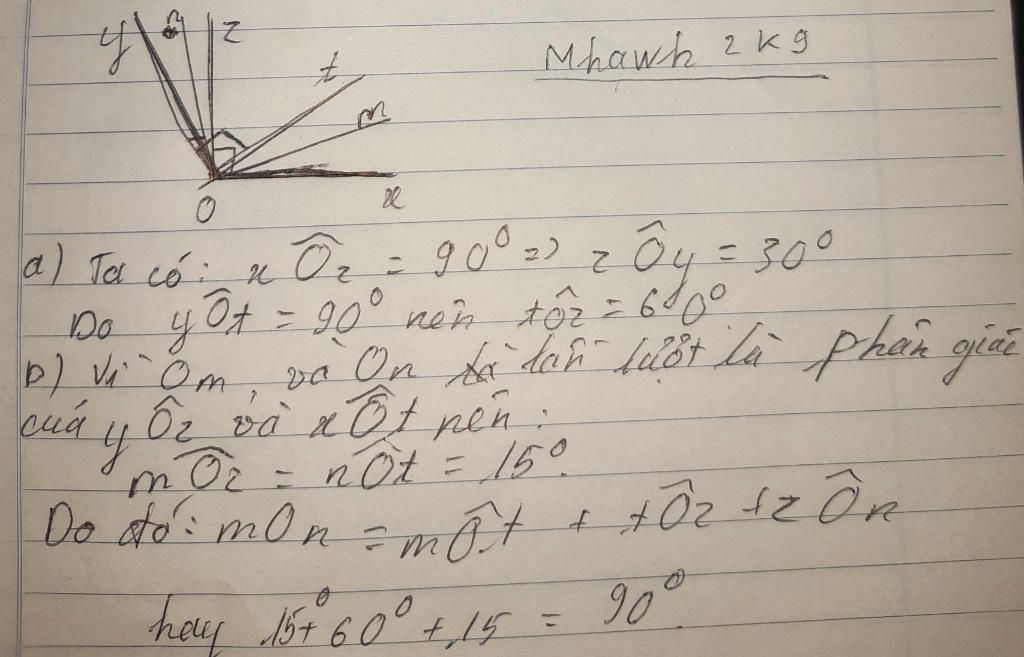 y n z
t
m
O x
Mhawh 2k9
a) Ta có: xÔz = 90⁰ => zÔy = 30⁰
Do yÔt = 90⁰ nên tôz = 60⁰
b) Vì Om, và On lần lượt là phân giác
của yÔz và xÔt nên:
mÔz = nÔt = 15⁰.
Do đó: mOn = mÔt + tÔz + zÔn
hay 15⁰ + 60⁰ + 15 = 90⁰.